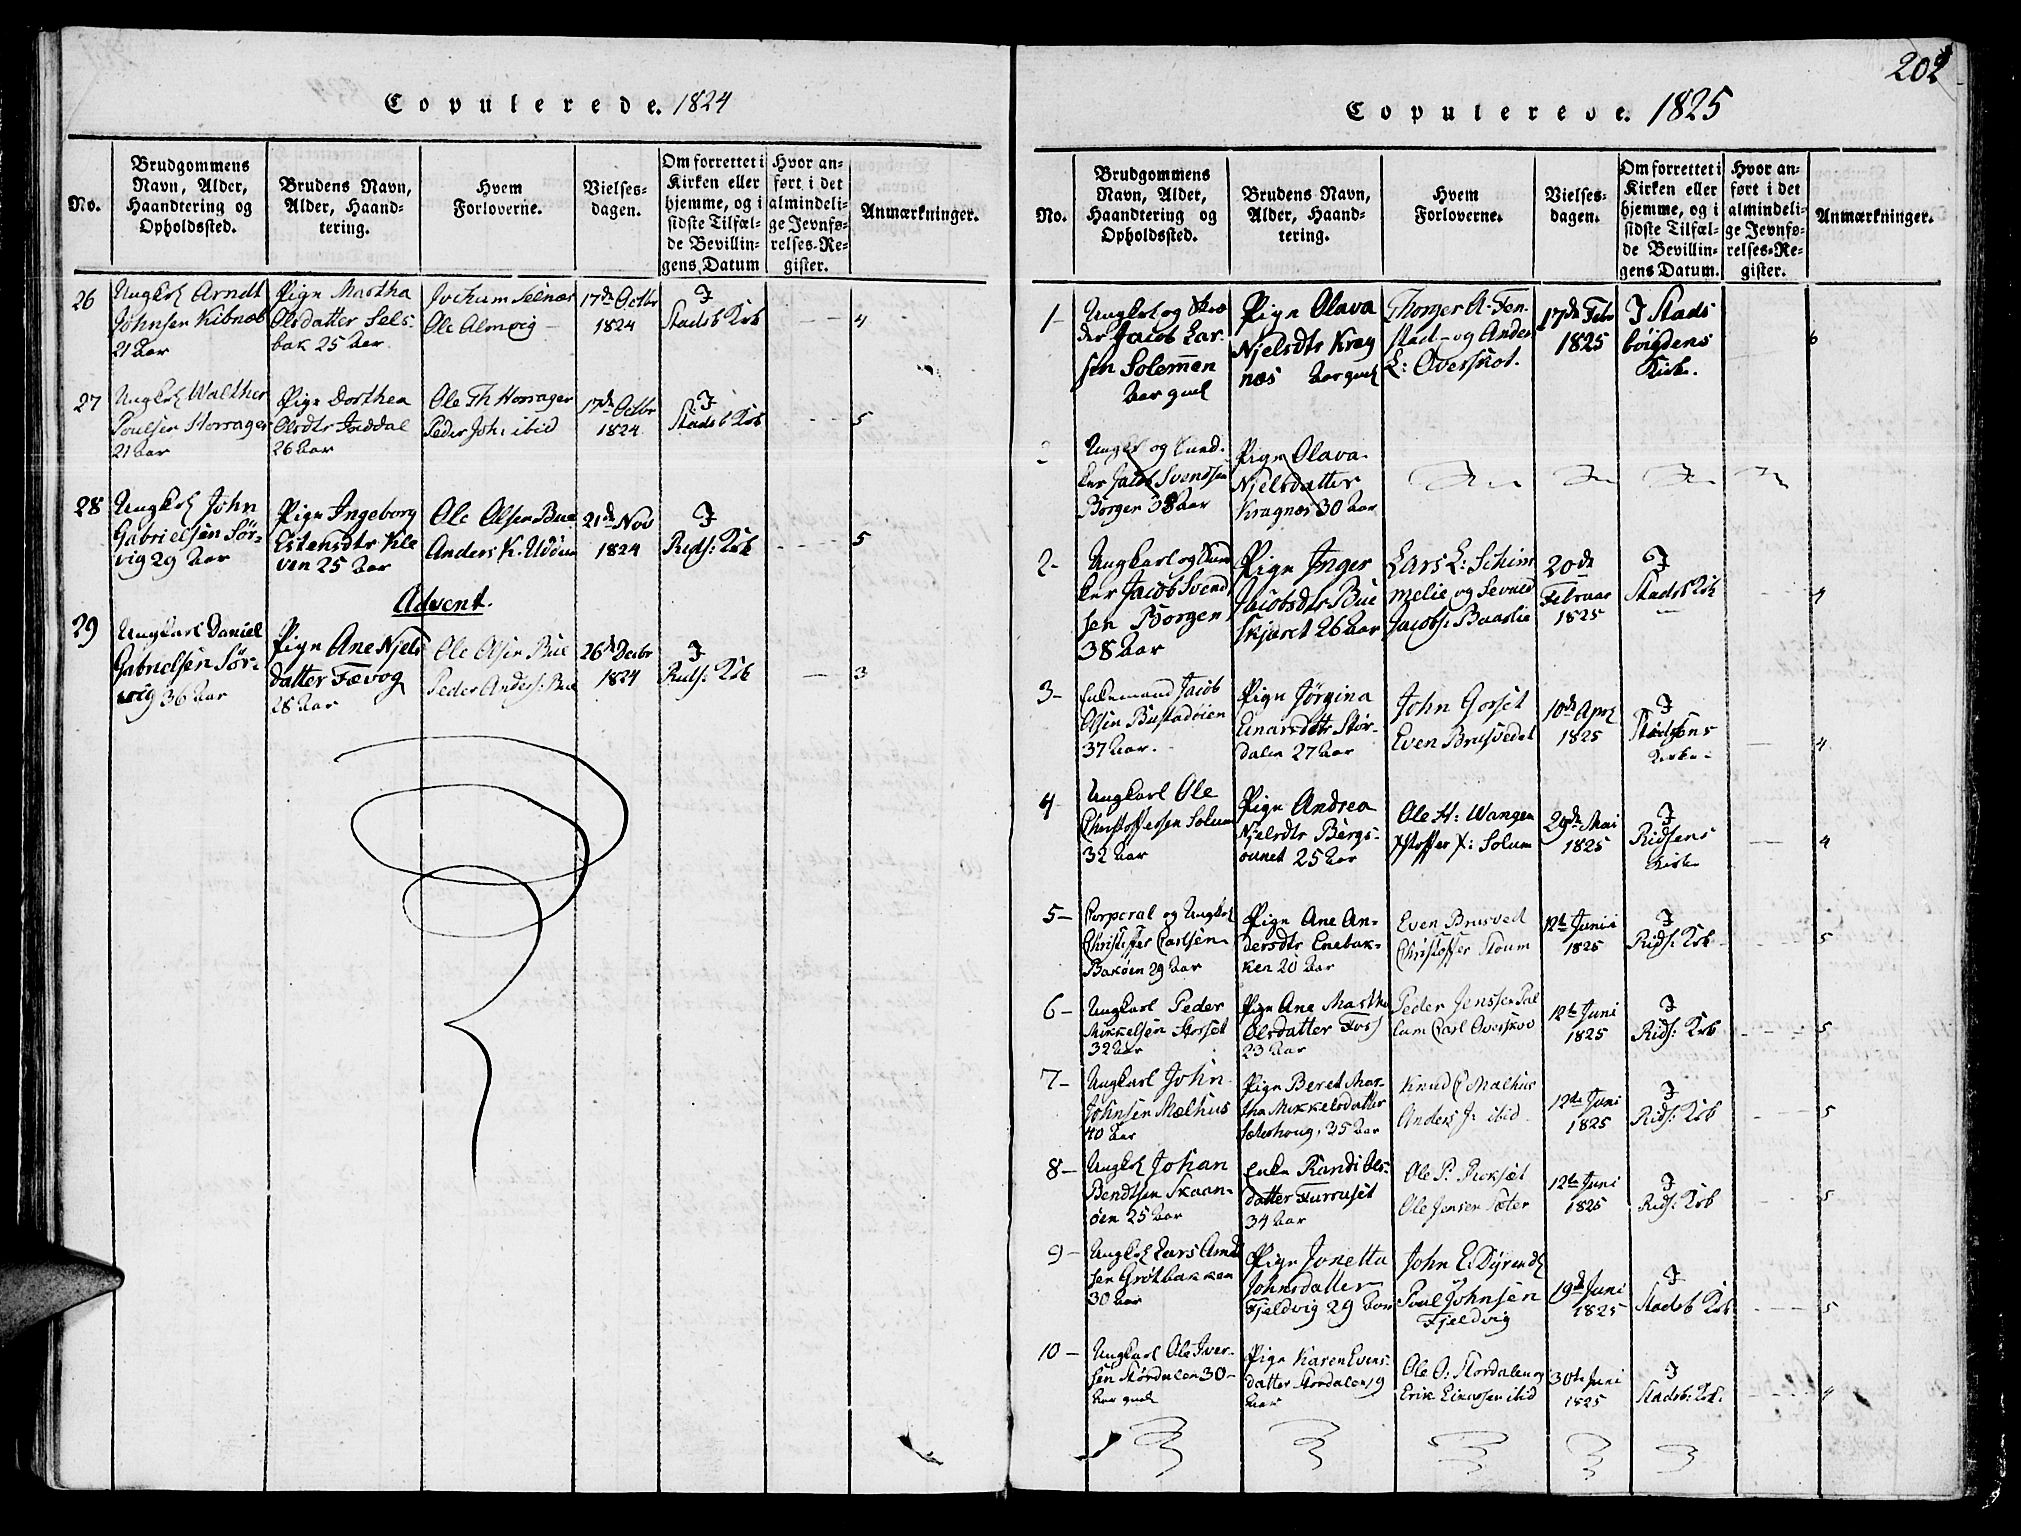 Copulerede. 1824
No.
Brudgommens
Navn, Alder,
Haandtering og
Opholdssted.
Brudens Navn,
Alder, Haand-
tering.
Hvem
Forloverne.
Vielses-
dagen.
Om forrettet i
Kirken eller
hjemme, og i
sidste Tilfæl-
de Bevillin-
gens Datum
Hvor an-
ført i det
almindeli-
ge Jevnfø-
relses-Re-
gister.
Anmærkninger.
26
Ungkrl Arndt
Johnsen
21 Aar
Pige Martha
Olsdatter Sels-
bak 25 Aar
Jochum Selnæs
Ole Almvig
17de Octbr
1824
I
Stadsb Krk
4
27
Ungkrl Walther
Poulsen Horrager
21 Aar
Pige Dorthea
Olsdtr Inddal
26 Aar
Ole Th Horrager
Peder Joh: ibid
17de Octbr
1824
I
Stadsb Krk
5
28
Ungkrl John
Gabrielsen Sør-
vig 29 Aar
Pige Ingeborg
Estensdtr Kle
ven 25 Aar
Ole Olsen Bue
Anders K.
21de Nov
1824
I
Rids: Krk
5
Advent.
29
Ungkarl Daniel
Gabrielsen Sør-
vig 36 Aar
Pige Ane Njels
datter Fævog
28 Aar
Ole Olsen Bue
Peder Anders: Bue
26de Decbr
1824
I
Rids: Krk
3
202
Copulerede. 1825
No.
Brudgommens
Navn, Alder,
Haandtering og
Opholdssted.
Brudens Navn,
Alder, Haand-
tering.
Hvem
Forloverne.
Vielses-
dagen.
Om forrettet i
Kirken eller
hjemme, og i
sidste Tilfæl-
de Bevillin-
gens Datum.
Hvor an-
ført i det
almindeli-
ge Jevnfø-
relses-Re-
gister.
Anmærkninger.
1-
Ungkrl og Skræ
der Jacob Lar-
sen Solemmen
Aar gml
Pige Olava
Njelsdtr Krag
næs Aar gml
Thorger A. Fen
stad - og Anders
L: Overskot.
17de Febr
1825
I Stads
bøigdens
Kirke.
6
2
Ungkrl og Kund-
ker Jacob Svendsen
Borgen 38 Aar
Pige Olava
Njelsdatter
Kragnæs 30 Aar
2-
Ungkarl og Kund
ker Jacob Svend
sen Borgen
38 Aar
Pige Inger
Jacobsdtr Bue
skjæret 26 Aar
Lars L: Schim
melie og Sevald
Jacobs: Baaslie
20de
Februar
1825
I
Stadsb Krk
4
3-
Enkemand Jacob
Olsen Bustadøien
37 Aar.
Pige Jørgina
Einarsdatr Stør-
dalen 27 Aar
John Gorset
Even Brusvedet
10de Aprl
1825
I
Kirke
4
4
Ungkarl Ole
Christoffersen Solum
32 Aar
Pige Andrea
Njelsdtr Bergs-
ounet 25 Aar
Ole H: Wangen
Xstoffer X: Solum
29de Mai
1825
I
Ridsens
Kirke
4
5-
Corporal og Ungkrl
Christoffer Carlsen
Bakøen 29 Aar
Pige Ane An-
dersdtr Enebak-
ken 20 Aar
Even Brusved
Christoffer Solum
12te Junii
1825
I
Rids: Krk
5
6-
Ungkarl Peder
Mikkelsen Storset
32 Aar
Pige Ane Martha
Olsdatter Foss
23 Aar
Peder Jenssen Sal
lum Carl Overskov
12te Juni
1825
I
Rids: Krk
5
7-
Ungkarl John
Johnsen Mælhus
40 Aar
Pige Beret Mar-
tha Mikkelsdatter
Sæterhoug, 35 Aar
Knud C Mælhus
Anders J: ibid
12te Juni
1825
I
Rids: Krk
5
8-
Ungkrl Johan
Bendtsen Skaan-
øen 25 Aar
Enke Randi Ols-
datter Furruset
34 Aar
Ole P: Roksæt
Ole Jensen Sæter
12te Juni
1825
I
Rids: Krk
5
9-
Ungkrl Lars Arnt
sen Grøtbakken
30 Aar
Pige Jonetta
Johnsdatter
Fjeldvig 29 Aar
John E. Dyrendl
Poul Johnsen
Fjeldvig
19de Juni
1825
I
Stadsb Krk
5
10-
Ungkarl Ole Iver-
sen Størdalen 30-
Aar gml
Pige Karen Evens-
datter Stordalen 19
Aar
Ole O: Stordalen og
Erik Einarsen ibid
30te Juni
1825
I
Stadsb: Krk:
4